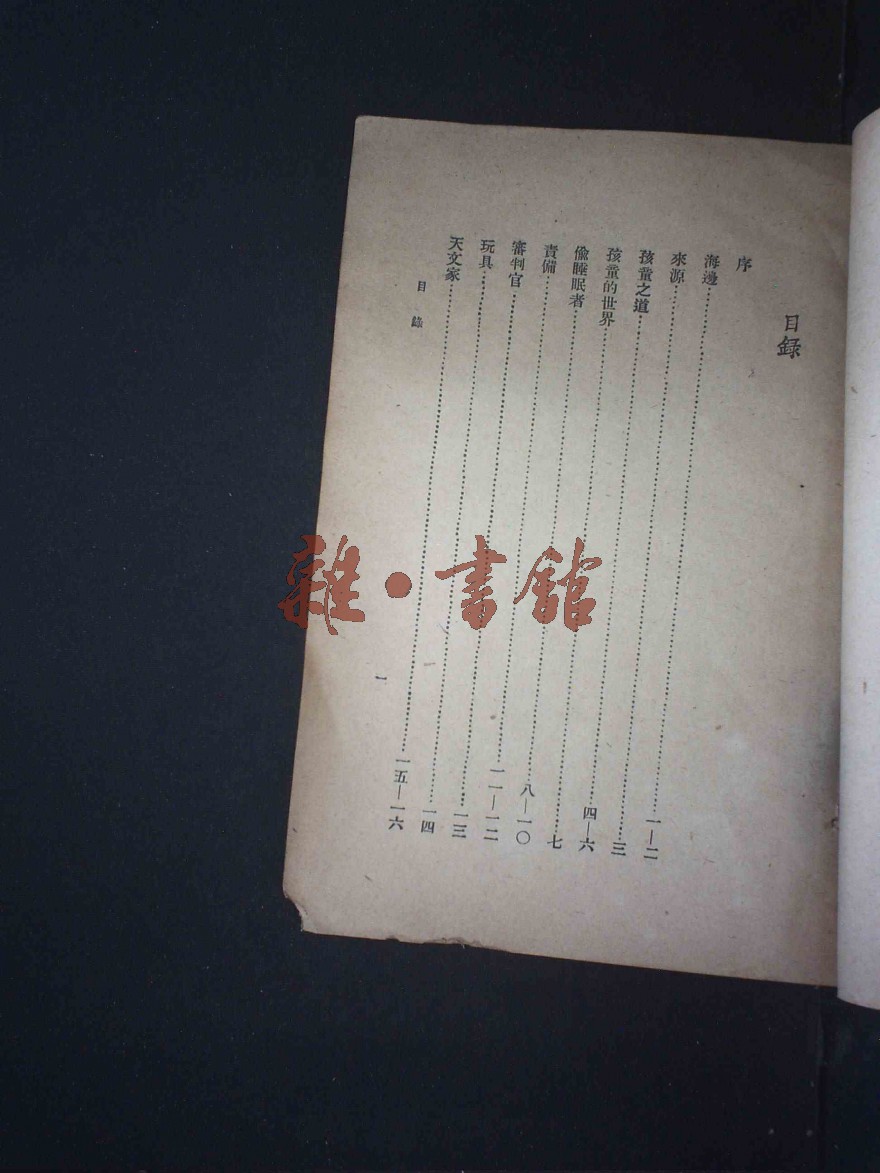 目錄
序
海邊………一—二
來源………三
孩童之道………四—六
孩童的世界………七
偷睡眠者………八—一〇
責備………一一—一二
審判官………一三
玩具………一四
天文家………一五—一六
目錄
一
雜·書館